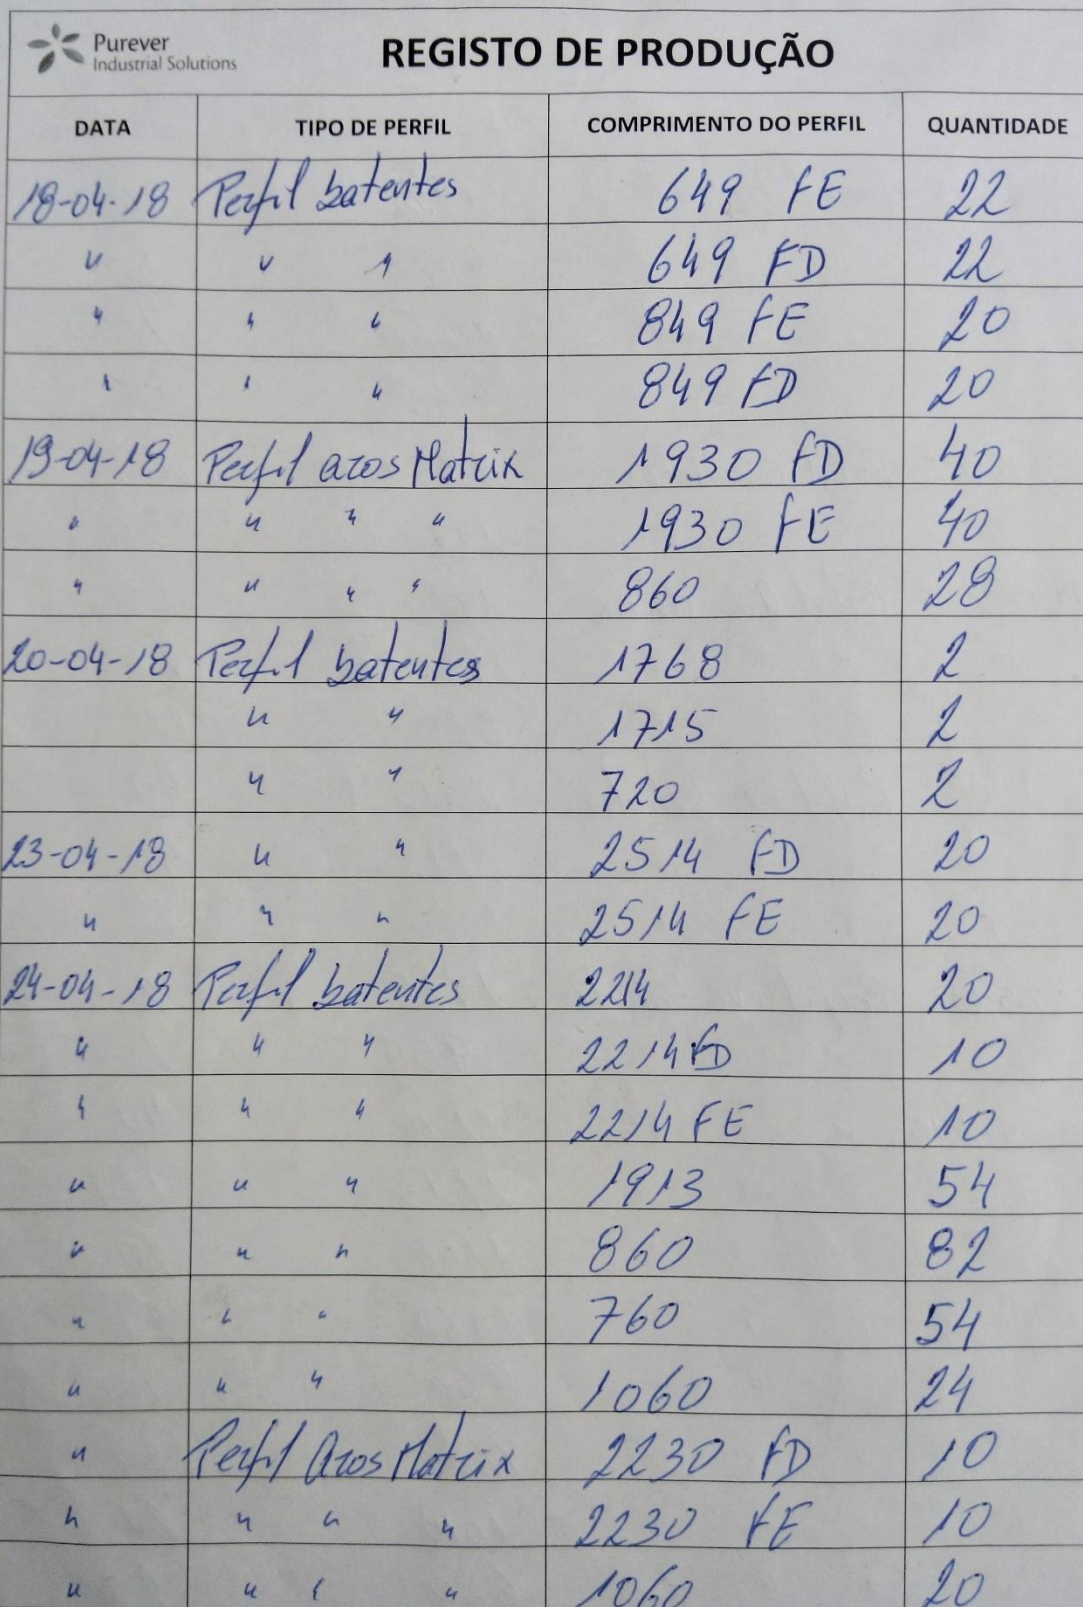 Purever
Industrial Solutions
REGISTO DE PRODUÇÃO
DATA TIPO DE PERFIL COMPRIMENTO DO PERFIL QUANTIDADE
18-04-18 Perfil batentes 649 FE 22
" " " 649 FD 22
" " " 849 FE 20
" " " 849 FD 20
19-04-18 Perfil aros Matrix 1930 FD 40
" " " " 1930 FE 40
" " " " 860 28
20-04-18 Perfil batentes 1768 2
" " 1715 2
" " 720 2
23-04-18 " " 2514 FD 20
" " " 2514 FE 20
24-04-18 Perfil batentes 2214 20
" " " 2214 FD 10
" " " 2214 FE 10
" " " 1913 54
" " " 860 82
" " " 760 54
" " " 1060 24
" Perfil Aros Matrix 2230 FD 10
" " " " 2230 FE 10
" " " " 1060 20